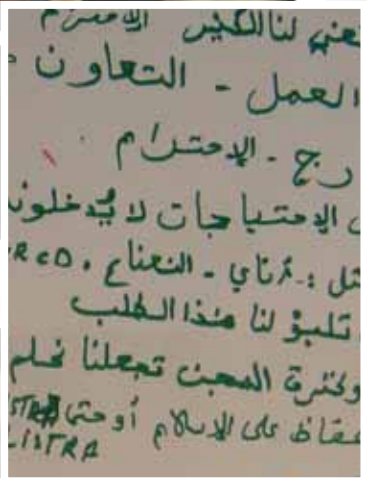 تعني لنا الكثير الاحترام
العمل - التعاون
رج - الإحترام .
الاحتياجات لا يُدخلون
تل : تاي - النعناع . RCD
تلبو لنا هذا الطلب
ولفترة السجن تجعلنا نحلم
حفاظ على الاسلام أو حتى
LISTRA